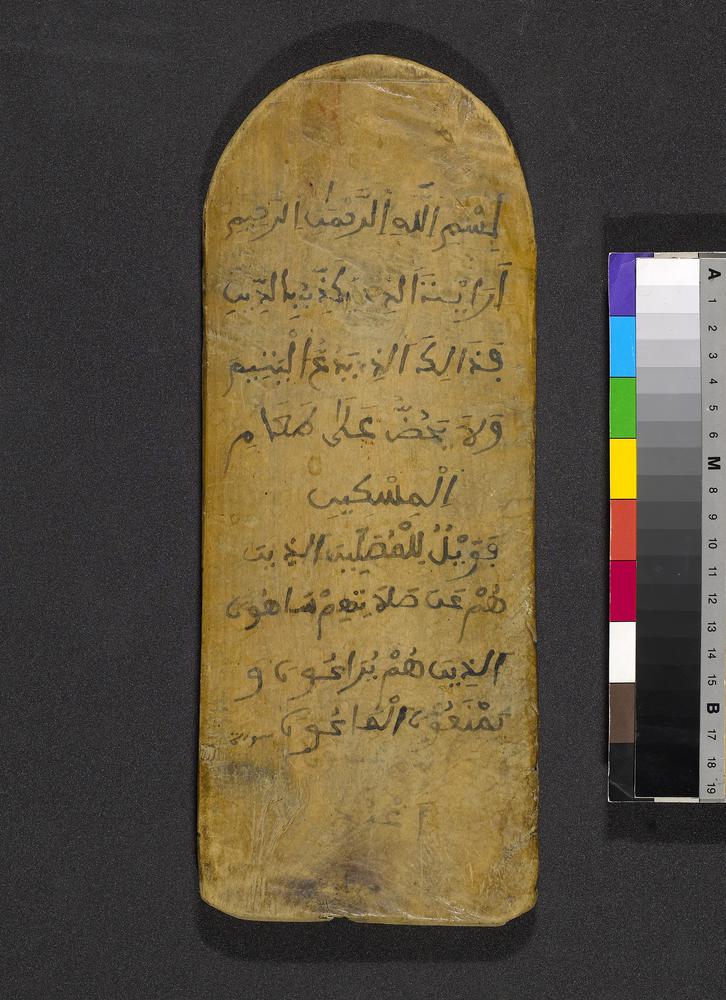 بِسْمِ اللَّهِ الرَّحْمٰنِ الرَّحِيمِ
أَرَايْتَ الذِي يُكَذِّبُ بِالدِّينِ
فَذَالِكَ الذِي يَدُعُّ الْيَتِيمَ
وَلاَ يَحُضُّ عَلَىٰ طَعَامِ
الْمِسْكِينِ
فَوَيْلٌ لِلْمُصَلِّينَ الذِينَ
هُمْ عَن صَلاَتِهِمْ سَاهُونَ
الذِينَ هُمْ يُرَاءُونَ وَ
يَمْنَعُونَ الْمَاعُونَ سورة
A 1 2 3 4 5 6 M 8 9 10 11 12 13 14 15 B 17 18 19